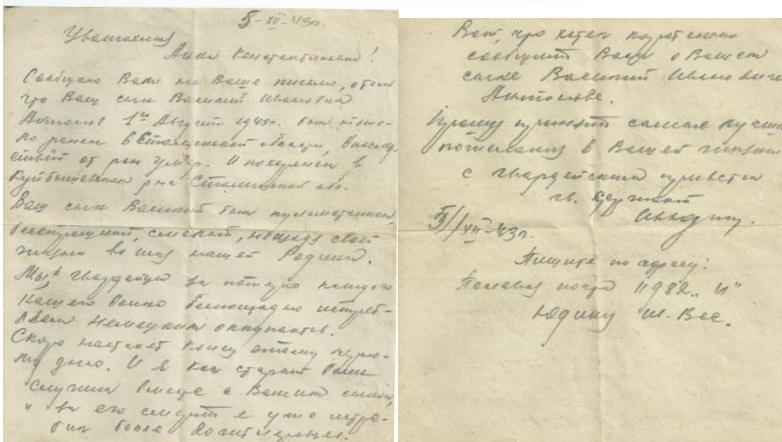 5-XII-43г.
Уважаемая
Анна Константиновна!
Сообщаю Вам на Ваше письмо, о том
что Ваш сын Василий Иванович
Антонов 1го Августа 1943г. был тяже-
ло ранен в Сталинской области, впослед
ствии от ран умер. И похоронен в
Куйбышевском р-не Сталинской обл.
Ваш сын Василий был пулеметчиком,
бесстрашный, смелый, не щадя своей
жизни во имя нашей Родины.
Мы гвардейцы за потерю каждого
нашего воина беспощадно истреб-
ляем немецких оккупантов.
Скоро настанет конец этому черно-
му дню. И я как старый воин
служил вместе с Вашим сыном,
и за его смерть я уже истре-
бил более 20 гитлеровцев.
Вот, что хотел кратенько
сообщить Вам о Вашем
сыне Василий Ивановиче
Антонове.
Прошу принять самые лучшие
пожелания в Вашей жизни
с гвардейским приветом
гв. сержант
5/XII-43г.
Пишите по адресу:
Полевая почта 11982 "И"
Юдину